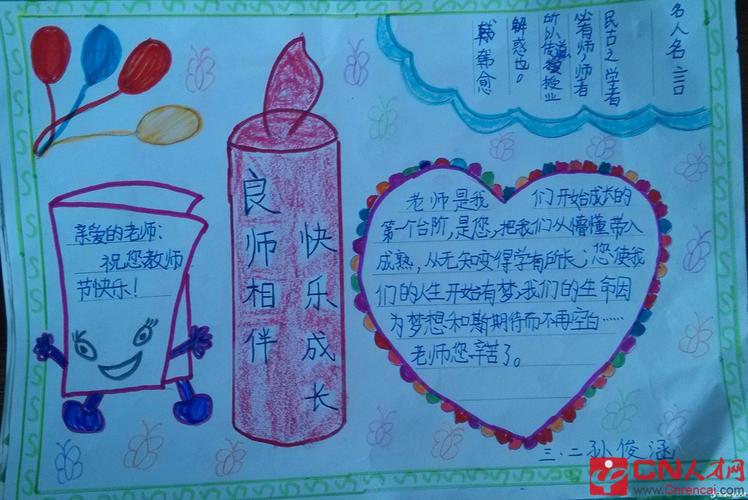 名人名言
民古之学者
必有师,师者
所以传道授业
解惑也。
韩愈
亲爱的老师:
祝您教师
节快乐!
良师相伴
快乐成长
老师是我们开始成长的
第一个台阶,是您,把我们从懵懂带入
成熟,从无知变得学有所长;您使我
们的人生开始有梦,我们的生命因
为梦想和斯期待而不再空白……
老师您辛苦了。
三.二孙俊涵
CN人才网
www.Cnrencai.com